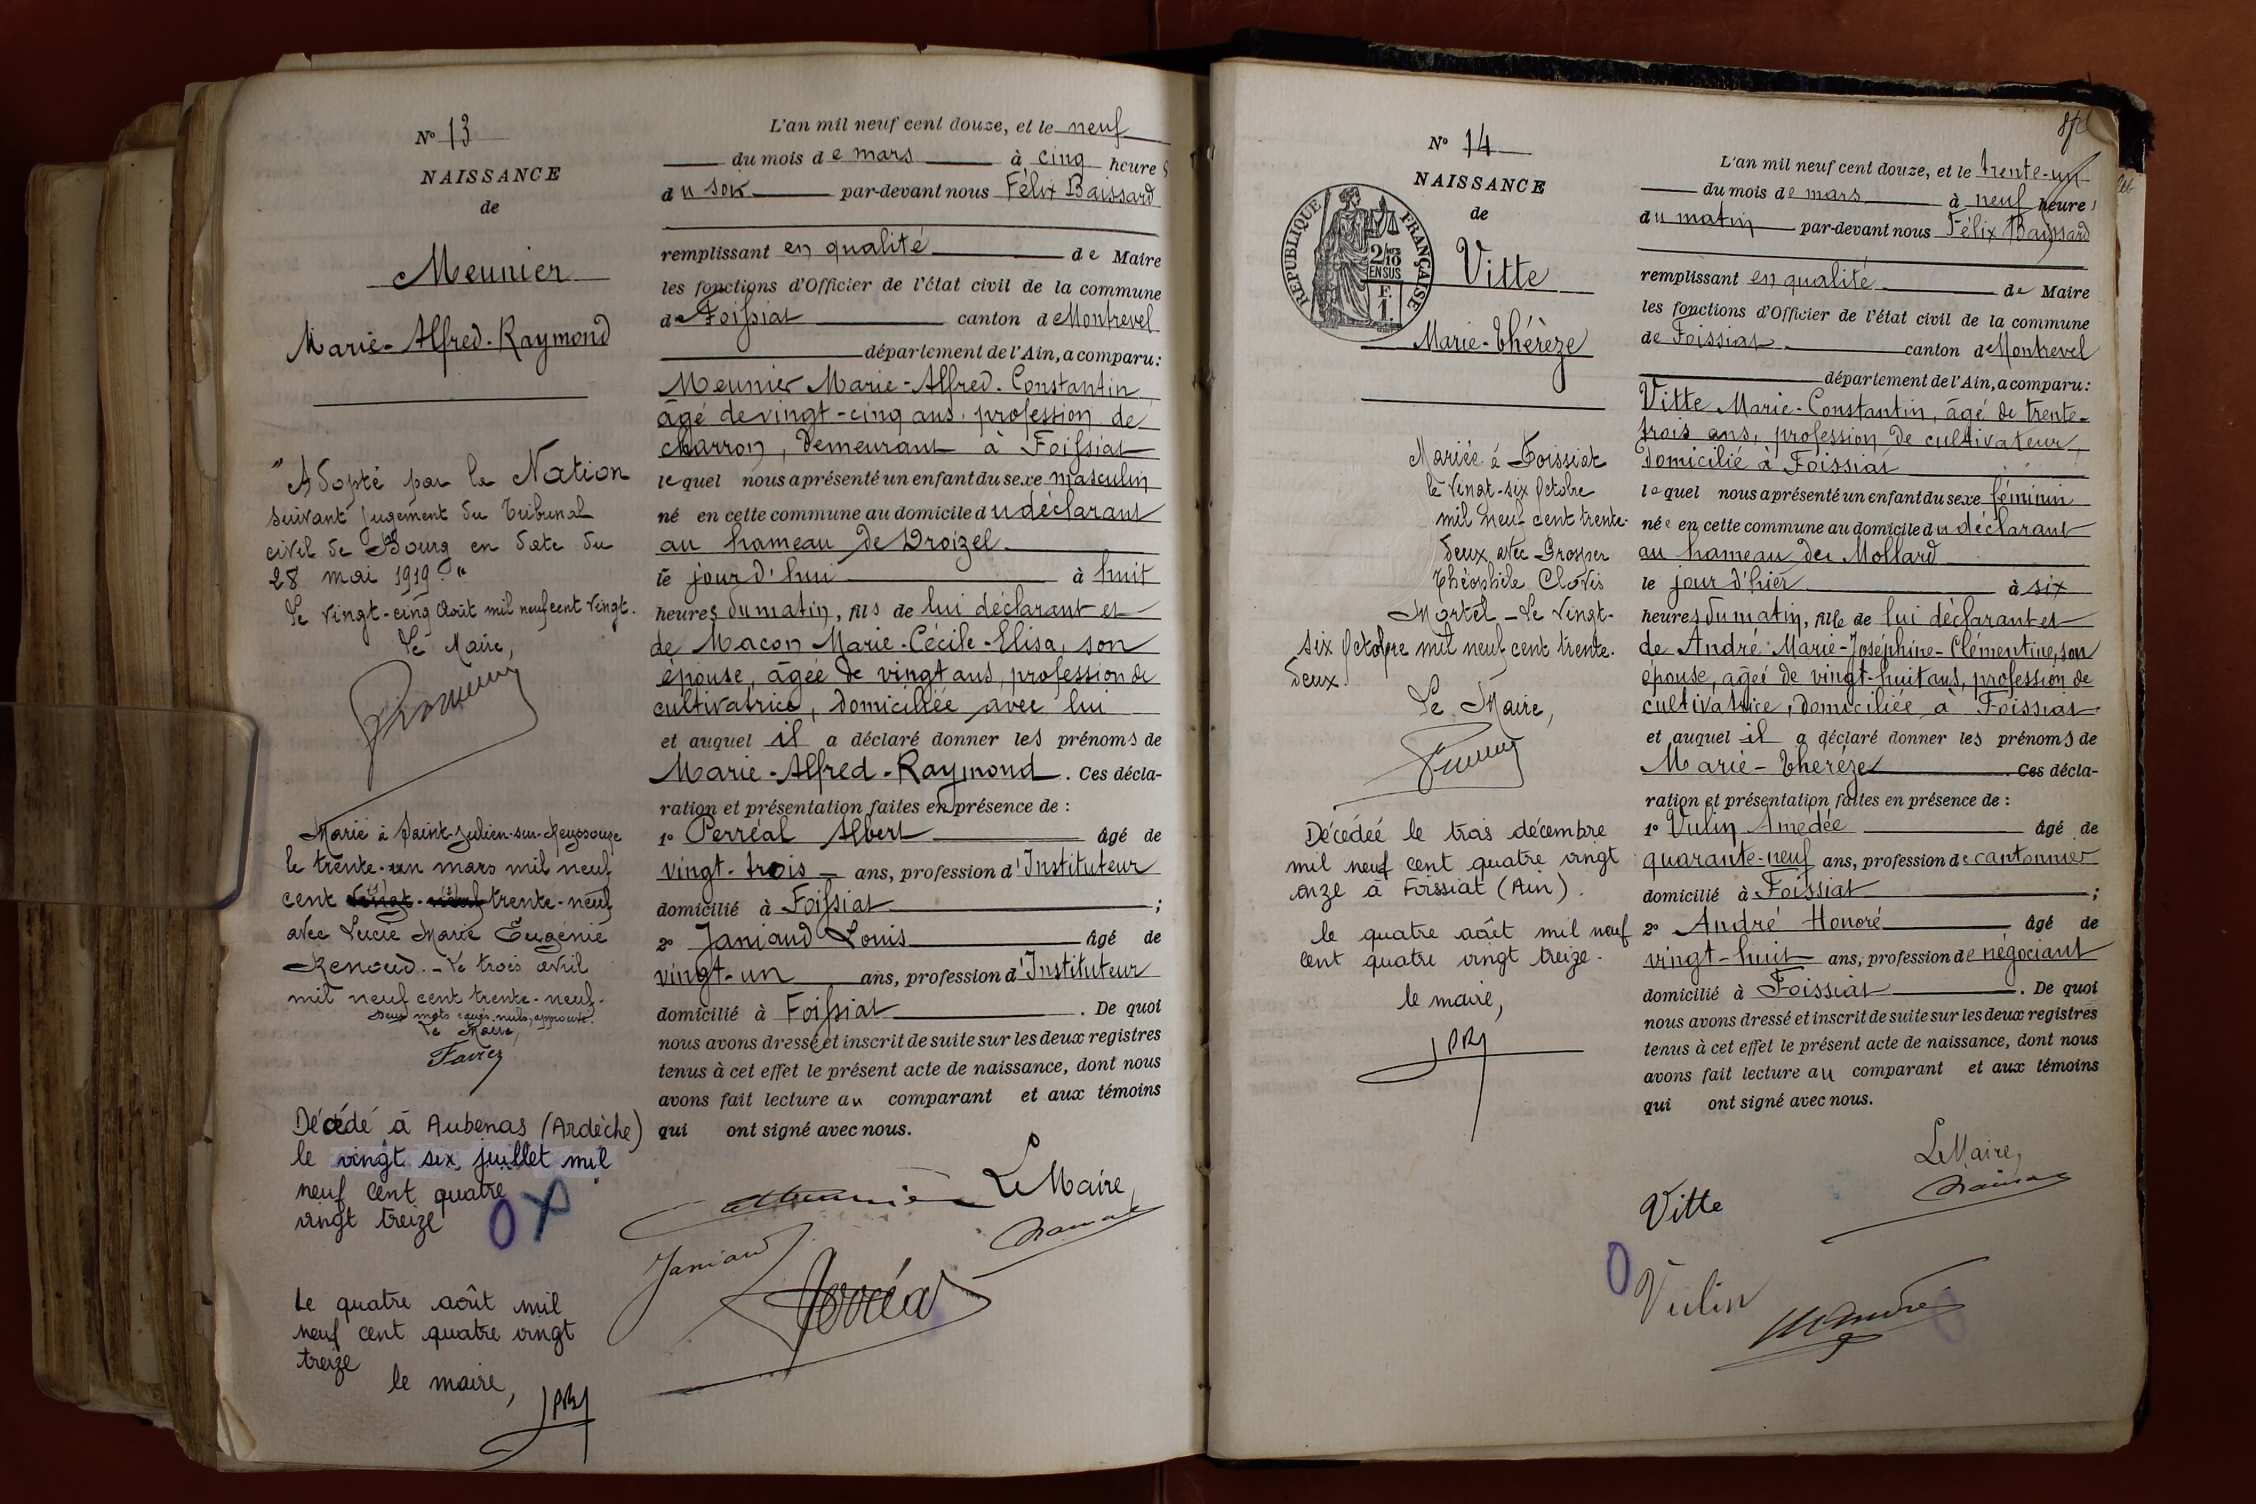 N° 13
NAISSANCE
de
Meunier
Marie-Alfred-Raymond
"Adopté par la Nation
suivant jugement du Tribunal
civil de Bourg en date du
28 mai 1919."
Le vingt-cinq Août mil neuf cent vingt.
Le Maire,
Marié à Saint-Julien-sur-Reyssouze
le trente-un mars mil neuf
cent vingt-neuf trente-neuf
avec Lucie Marie Eugénie
Renoud. - Le trois avril
mil neuf cent trente-neuf.
Deux mots rayés nuls, approuvé.
Le Maire,
Favier
Décédé à Aubenas (Ardèche)
le vingt six juillet mil
neuf cent quatre
vingt treize
Le quatre août mil
neuf cent quatre vingt
treize
le maire,
L'an mil neuf cent douze, et le neuf
du mois de mars à cinq heures
du soir par-devant nous Félix Baissard
remplissant en qualité de Maire
les fonctions d'Officier de l'état civil de la commune
de Foissiat canton de Montrevel
département de l'Ain, a comparu:
Meunier Marie-Alfred-Constantin
âgé de vingt-cinq ans, profession de
charron, demeurant à Foissiat
lequel nous a présenté un enfant du sexe masculin
né en cette commune au domicile du déclarant
au hameau de Droizel
le jour d'hui à huit
heures du matin, fils de lui déclarant et
de Macon Marie-Cécile-Elisa, son
épouse, âgée de vingt ans, profession de
cultivatrice, domiciliée avec lui
et auquel il a déclaré donner les prénoms de
Marie-Alfred-Raymond. Ces décla-
ration et présentation faites en présence de :
1° Perréal Albert âgé de
vingt-trois ans, profession d'Instituteur
domicilié à Foissiat ;
2° Janiaud Louis âgé de
vingt-un ans, profession d'Instituteur
domicilié à Foissiat . De quoi
nous avons dressé et inscrit de suite sur les deux registres
tenus à cet effet le présent acte de naissance, dont nous
avons fait lecture au comparant et aux témoins
qui ont signé avec nous.
Le Maire,
Meunier
Janiaud
Perréal
N° 14
NAISSANCE
de
RÉPUBLIQUE FRANÇAISE
2/10
EN SUS
F.
1.
Vitte
Marie-Thérèze
Mariée à Foissiat
le vingt-six Octobre
mil neuf cent trente-
deux avec Prosper
Théophile Clovis
Mortel - Le vingt-
six Octobre mil neuf cent trente-
deux.
Le Maire,
Décédée le trois décembre
mil neuf cent quatre vingt
onze à Foissiat (Ain).
le quatre août mil neuf
cent quatre vingt treize.
le maire,
L'an mil neuf cent douze, et le trente-un
du mois de mars à neuf heures
du matin par-devant nous Félix Baissard
remplissant en qualité de Maire
les fonctions d'Officier de l'état civil de la commune
de Foissiat canton de Montrevel
département de l'Ain, a comparu:
Vitte Marie-Constantin, âgé de trente-
trois ans, profession de cultivateur,
domicilié à Foissiat
lequel nous a présenté un enfant du sexe féminin
née en cette commune au domicile du déclarant
au hameau du Mollard
le jour d'hier à six
heures du matin, fille de lui déclarant et
de André Marie-Joséphine-Clémentine, son
épouse, âgée de vingt-huit ans, profession de
cultivatrice, domiciliée à Foissiat
et auquel il a déclaré donner les prénoms de
Marie-Thérèze . Ces décla-
ration et présentation faites en présence de :
1° Vulin Amedée âgé de
quarante-neuf ans, profession de cantonnier
domicilié à Foissiat ;
2° André Honoré âgé de
vingt-huit ans, profession de négociant
domicilié à Foissiat . De quoi
nous avons dressé et inscrit de suite sur les deux registres
tenus à cet effet le présent acte de naissance, dont nous
avons fait lecture au comparant et aux témoins
qui ont signé avec nous.
Le Maire,
Vitte
Vulin